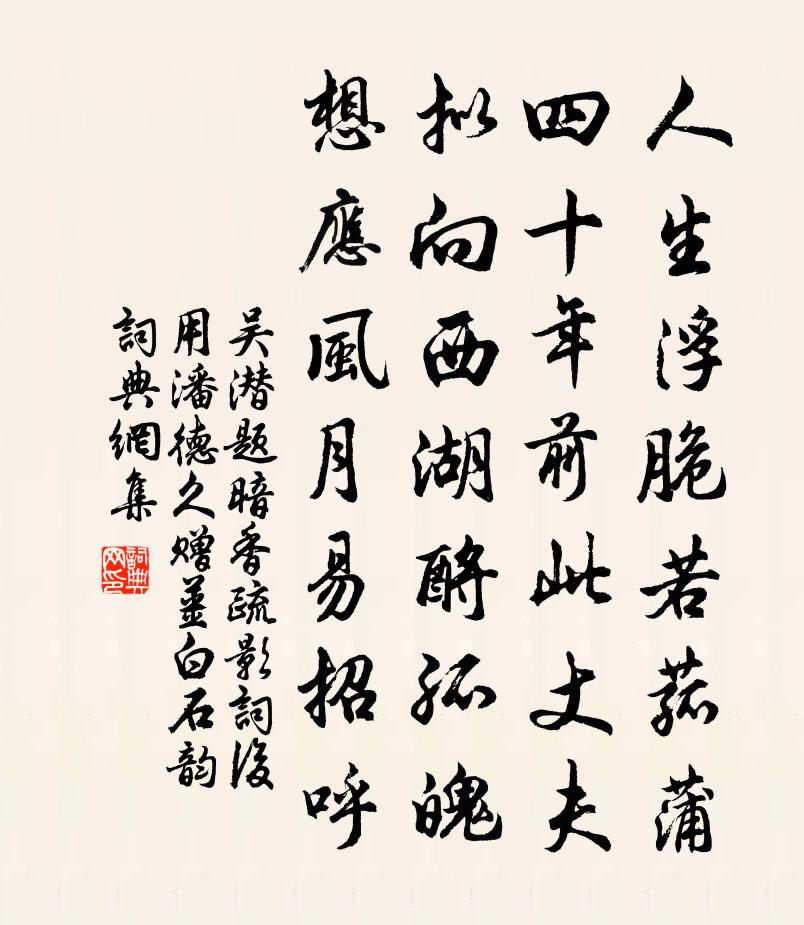 人生浮脆若菰蒲
四十年前此丈夫
拟向西湖酹孤魄
想應風月易招呼
吴潜题暗香疏影詞後
用潘德久赠姜白石韵
詞典網集
詞典网印